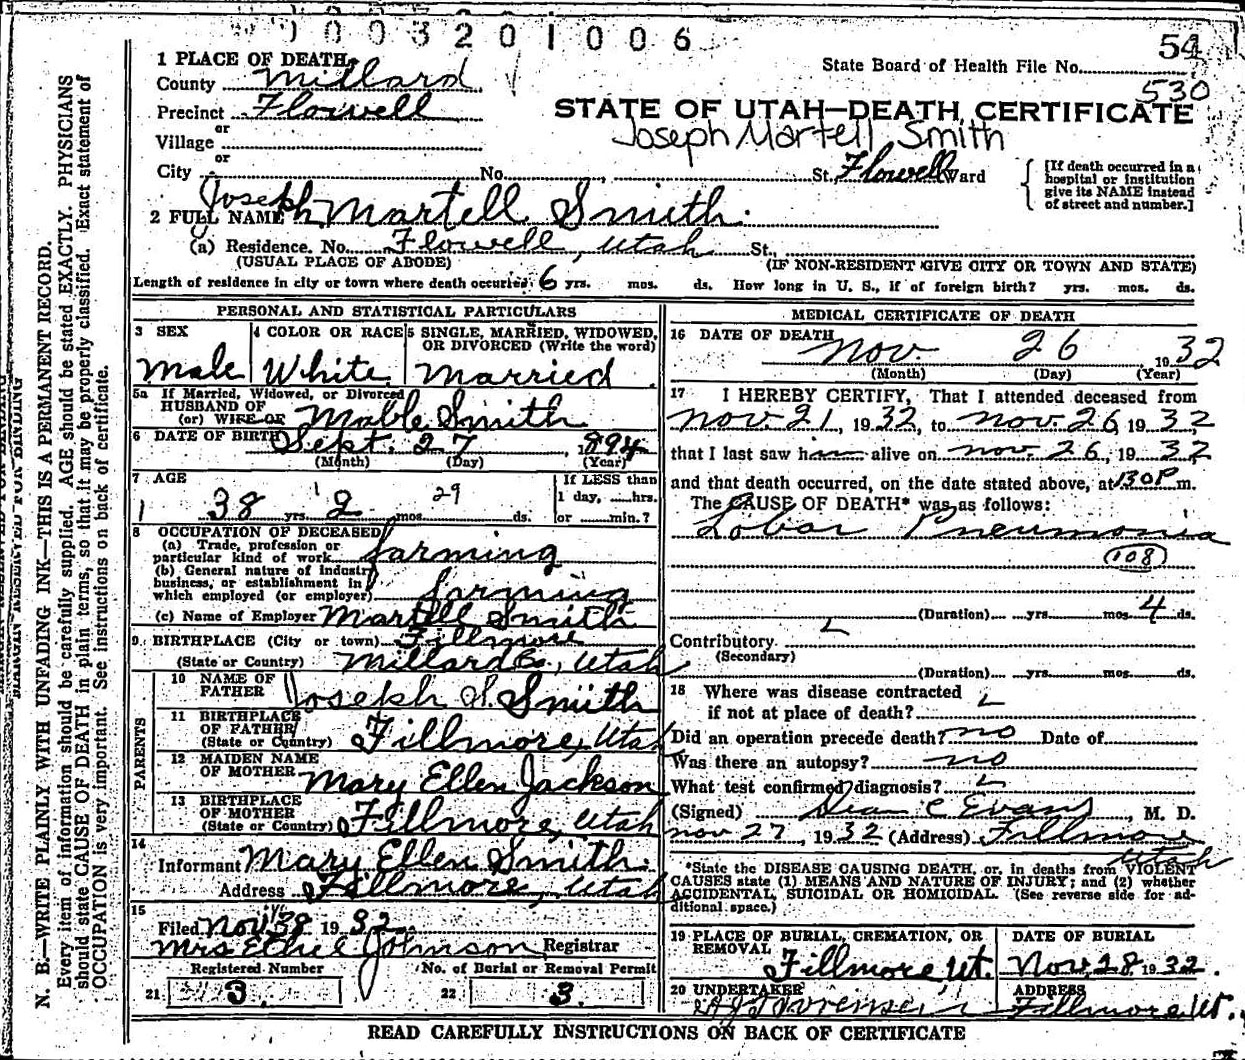 0003201006
54
1 PLACE OF DEATH
State Board of Health File No.
530
County Millard
Precinct Flowell
STATE OF UTAH—DEATH CERTIFICATE
or
Village
Joseph Martell Smith
or
City No. , St. Flowell Ward
[If death occurred in a hospital or institution give its NAME instead of street and number.]
2 FULL NAME Joseph Martell Smith
(a) Residence. No. Flowell, Utah St.,
(USUAL PLACE OF ABODE) (IF NON-RESIDENT GIVE CITY OR TOWN AND STATE)
Length of residence in city or town where death occurred 6 yrs. mos. ds. How long in U. S., if of foreign birth? yrs. mos. ds.
PERSONAL AND STATISTICAL PARTICULARS
3 SEX
Male
4 COLOR OR RACE
White
5 SINGLE, MARRIED, WIDOWED, OR DIVORCED (Write the word)
Married
5a If Married, Widowed, or Divorced
HUSBAND OF
(or) WIFE OF Mable Smith
6 DATE OF BIRTH Sept. 27, 1894
(Month) (Day) (Year)
7 AGE
38 yrs. 2 mos. 29 ds.
If LESS than 1 day, hrs. or min.?
8 OCCUPATION OF DECEASED
(a) Trade, profession or particular kind of work farming
(b) General nature of industry business, or establishment in which employed (or employer) farming
(c) Name of Employer Martell Smith
9. BIRTHPLACE (City or town) Fillmore
(State or Country) Millard Co., Utah
PARENTS
10 NAME OF FATHER Joseph S. Smith
11 BIRTHPLACE OF FATHER (State or Country) Fillmore, Utah
12 MAIDEN NAME OF MOTHER Mary Ellen Jackson
13 BIRTHPLACE OF MOTHER (State or Country) Fillmore, Utah
14
Informant Mary Ellen Smith
Address Fillmore, Utah
15
Filed Nov 1932
Mrs Ethel Johnson Registrar
Registered Number
21 3
No. of Burial or Removal Permit
22 3.
MEDICAL CERTIFICATE OF DEATH
16 DATE OF DEATH
Nov. 26 1932
(Month) (Day) (Year)
17 I HEREBY CERTIFY, That I attended deceased from
Nov 21, 1932, to Nov. 26, 1932,
that I last saw him alive on Nov. 26, 1932,
and that death occurred, on the date stated above, at 130P m.
The CAUSE OF DEATH* was as follows:
Lobar Pneumonia
108
(Duration) yrs. mos. 4 ds.
Contributory
(Secondary)
(Duration) yrs. mos. ds.
18 Where was disease contracted
if not at place of death?
Did an operation precede death? no Date of
Was there an autopsy? no
What test confirmed diagnosis?
(Signed) Dean C Evans, M. D.
Nov 27, 1932 (Address) Fillmore
Utah
*State the DISEASE CAUSING DEATH, or, in deaths from VIOLENT
CAUSES state (1) MEANS AND NATURE OF INJURY; and (2) whether
ACCIDENTAL, SUICIDAL OR HOMICIDAL. (See reverse side for ad-
ditional space.)
19 PLACE OF BURIAL, CREMATION, OR REMOVAL
Fillmore, Ut.
DATE OF BURIAL
Nov. 28 1932.
20 UNDERTAKER
ADDRESS
Fillmore Ut.
READ CAREFULLY INSTRUCTIONS ON BACK OF CERTIFICATE
MARGIN RESERVED FOR BINDING
N. B.—WRITE PLAINLY WITH UNFADING INK—THIS IS A PERMANENT RECORD.
Every item of information should be carefully supplied. AGE should be stated EXACTLY. PHYSICIANS
should state CAUSE OF DEATH in plain terms, so that it may be properly classified. Exact statement of
OCCUPATION is very important. See instructions on back of certificate.